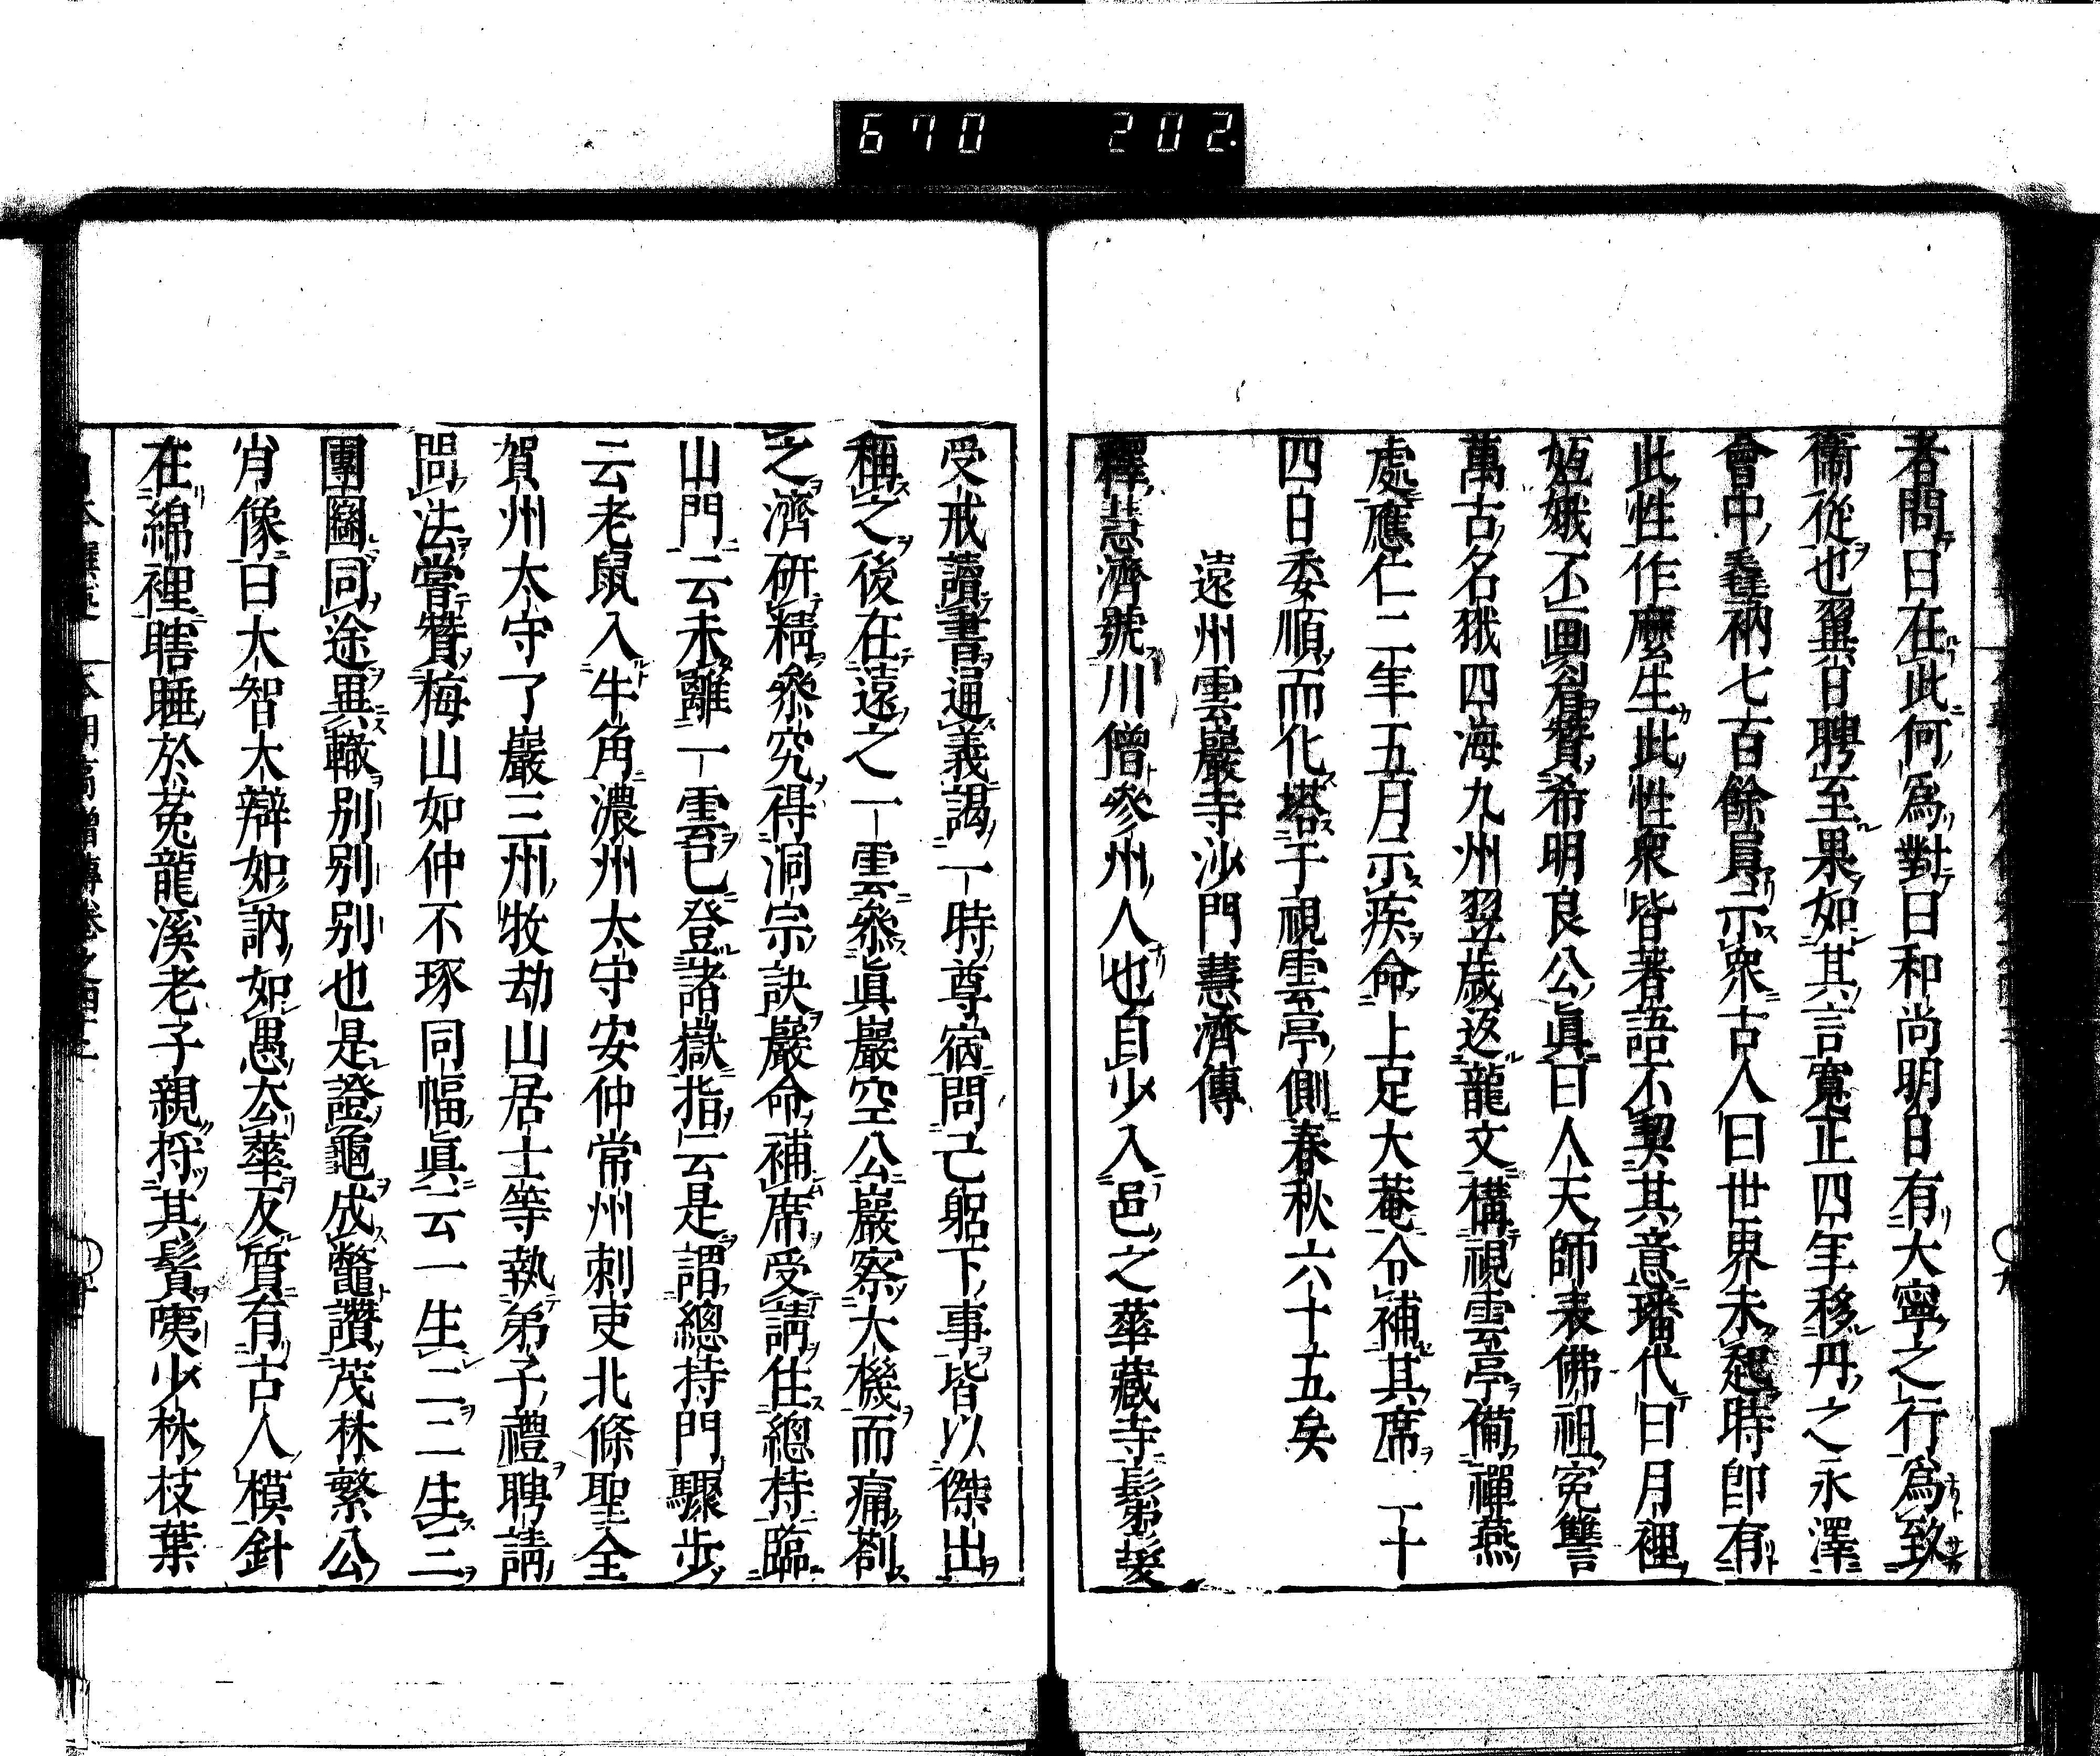 670 202.
者問曰在此何爲對曰和尚明日有大寧之行爲致
衞從也翼日聘至果如其言寬正四年移丹之永澤
會中毳衲七百餘員示衆古人曰世界未起時卽有
此性作麼生此性衆皆著語不契其意璠代曰月裡
姮娥不畫眉賛希明良公眞曰人天師表佛祖寃讐
萬古名猊四海九州翌歲返龍文構視雲亭備禪燕
處應仁二年五月示疾命上足大菴令補其席一十
四日委順而化塔于視雲亭側春秋六十五矣
遠州雲巖寺沙門慧濟傳
釋慧濟號川僧參州人也自少入邑之華藏寺鬀髮
受戒讀書通義謁一時尊宿問己躬下事皆以傑出
稱之後在遠之一雲參眞巖空公巖察大機而痛剳
之濟研精參究得洞宗訣巖命補席受請住總持臨
山門云未離一雲已登諸嶽指云是謂總持門驟步
云老鼠入牛角濃州太守安仲常州刺吏北條聖全
賀州太守了巖三州牧劫山居士等執弟子禮聘請
問法嘗賛梅山如仲不琢同幅眞云一生二二生三
團圝同途異轍別別別也是證龜成鼈讚茂林繁公
肖像曰大智大辯如訥如愚太華友質有古人模針
在綿裡瞎睡於菟龍溪老子親捋其鬚咦少林枝葉